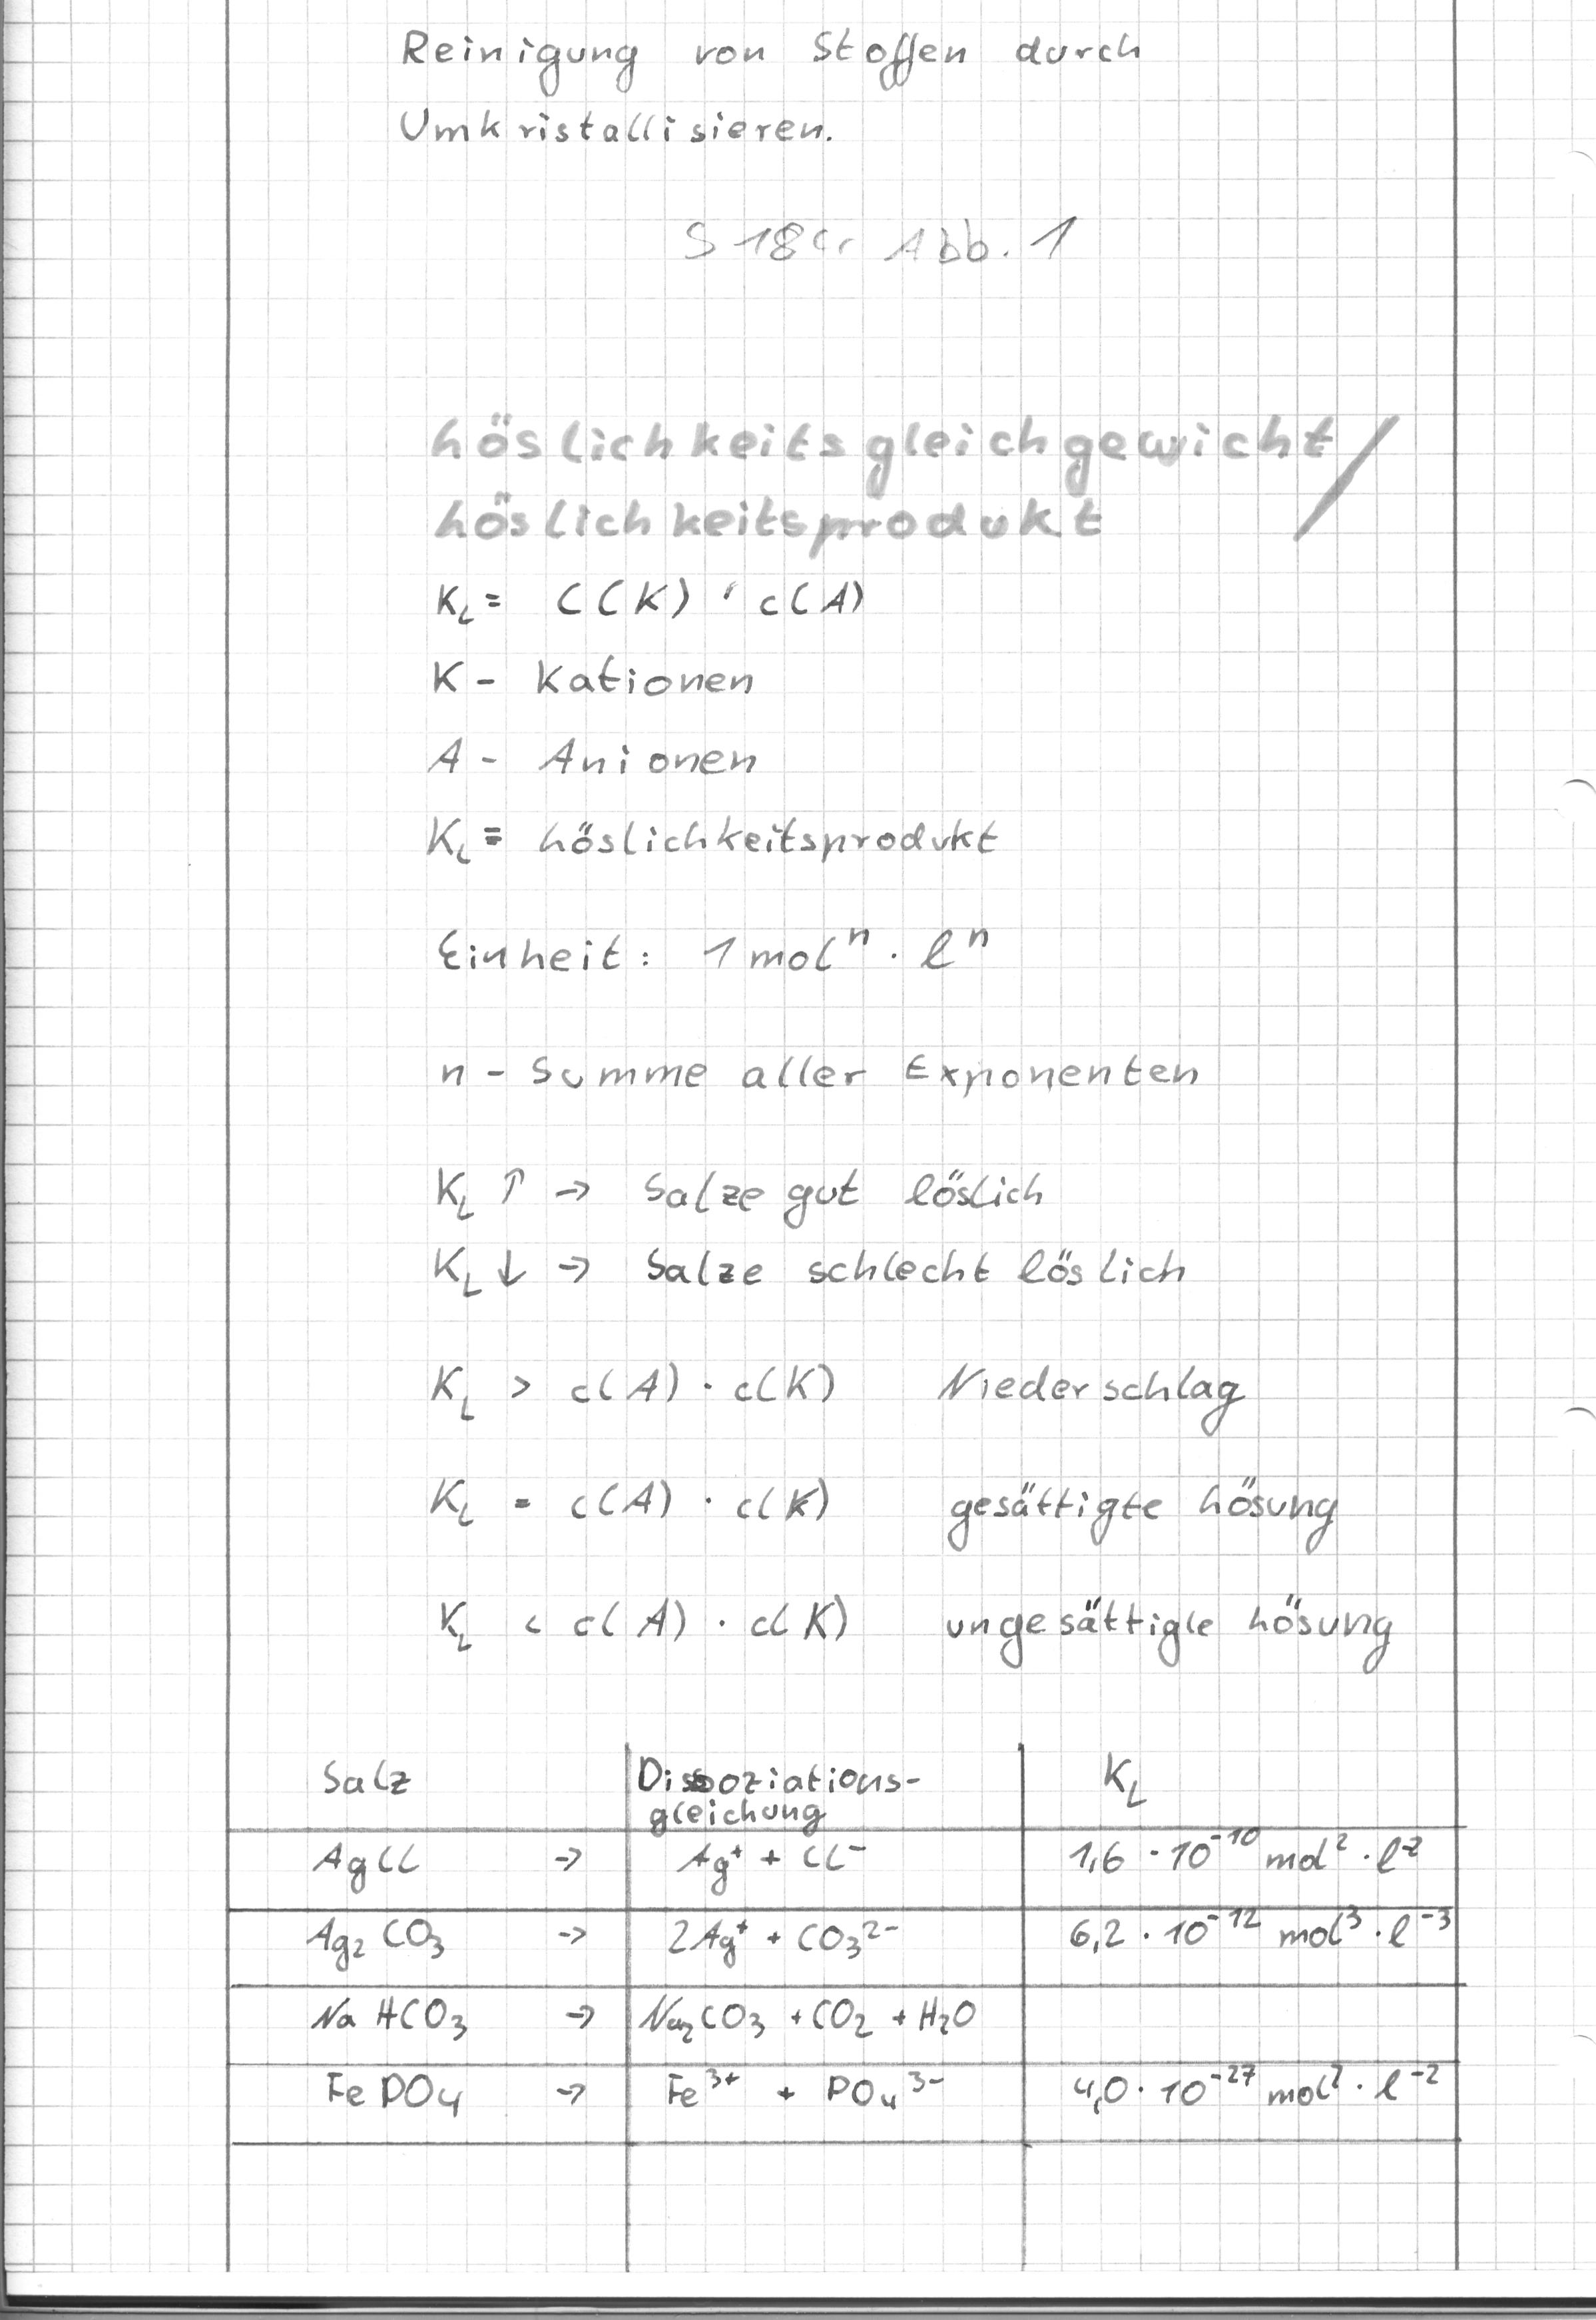 Reinigung von Stoffen durch
Umkristallisieren.
Abb. 1
Löslichkeitsgleichgewicht/
Löslichkeitsprodukt
K_L = C(K) · c(A)
K - Kationen
A - Anionen
K_L = Löslichkeitsprodukt
Einheit: 1 molⁿ · lⁿ
n - Summe aller Exponenten
K_L ↑ → Salze gut löslich
K_L ↓ → Salze schlecht löslich
K_L > c(A) · c(K) Niederschlag
K_L = c(A) · c(K) gesättigte Lösung
K_L < c(A) · c(K) ungesättigte Lösung
Salz Dissoziations- K_L
gleichung
AgCl → Ag⁺ + Cl⁻ 1,6 · 10⁻¹⁰ mol² · l⁻²
Ag₂CO₃ → 2Ag⁺ + CO₃²⁻ 6,2 · 10⁻¹² mol³ · l⁻³
NaHCO₃ → Na₂CO₃ + CO₂ + H₂O
FePO₄ → Fe³⁺ + PO₄³⁻ 4,0 · 10⁻²⁷ mol² · l⁻²